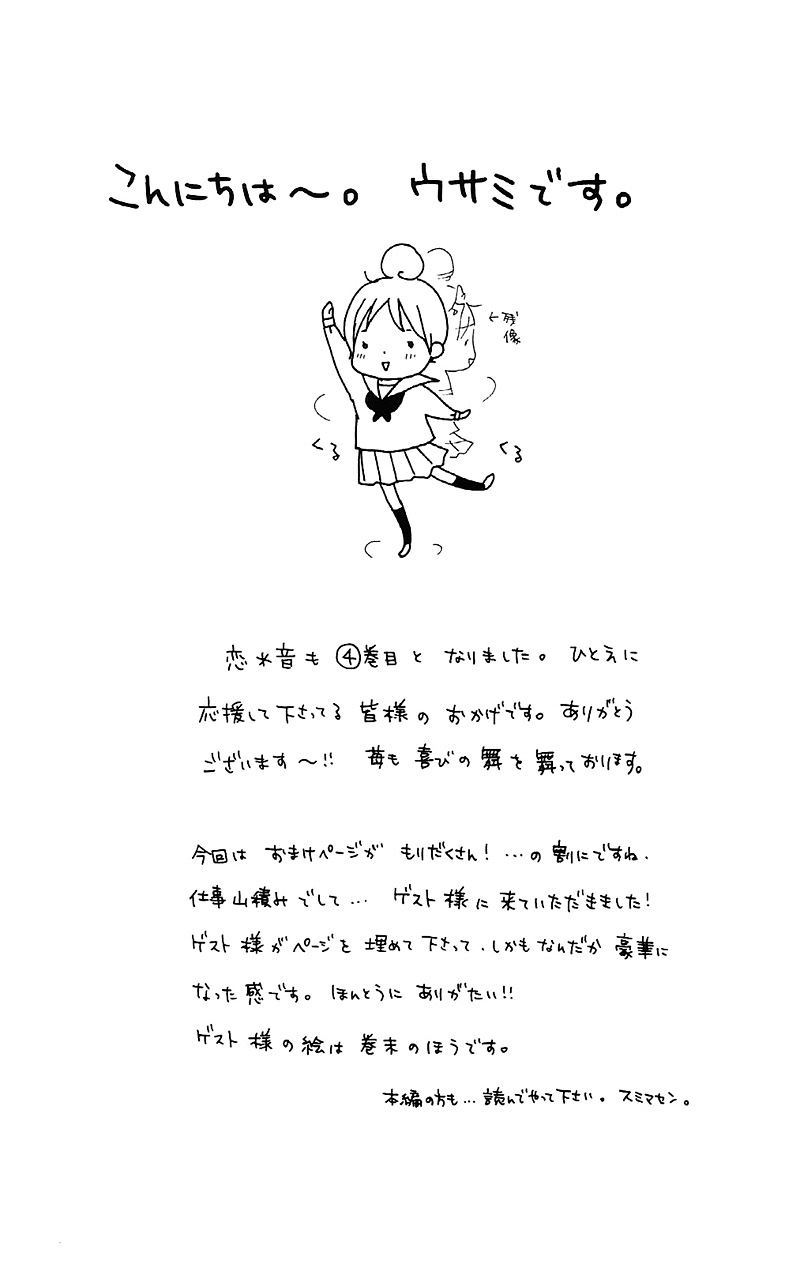 こんにちは〜。 ウサミです。
←残像
くる
くる
恋水音も④巻目と なりました。 ひとえに
応援して下さってる 皆様の おかげです。 ありがとう
ございます〜!! 苺も 喜びの 舞を 舞っております。
今回は おまけページが もりだくさん! …の 割にですね、
仕事山積みでして… ゲスト様に 来ていただきました!
ゲスト様がページを 埋めて 下さって、しかもなんだか 豪華に
なった感です。 ほんとうに ありがたい!!
ゲスト様の絵は 巻末のほうです。
本編の方も… 読んでやって下さい。 スミマセン。